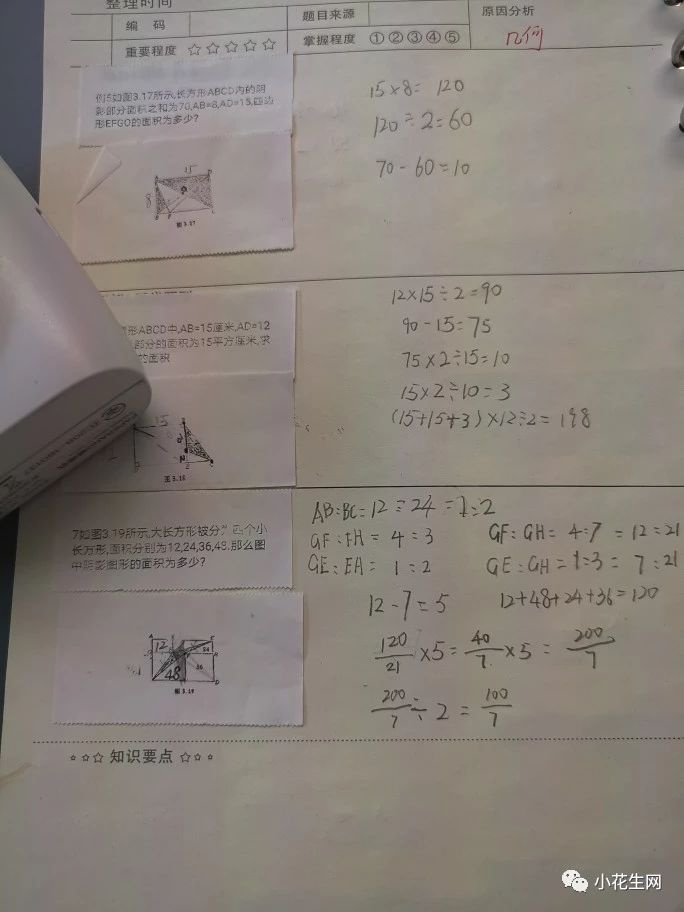 整理时间
编 码
题目来源
原因分析
重要程度 ☆☆☆☆☆
掌握程度 ①②③④⑤
几何
例5如图3.17所示,长方形ABCD内的阴
影部分面积之和为70,AB=8,AD=15,四边
形EFGO的面积为多少?
15
8
图3.17
15×8= 120
120÷2=60
70-60=10
形ABCD中,AB=15厘米,AD=12
部分的面积为15平方厘米,求
的面积
15
图3.18
12×15÷2=90
90-15=75
75×2÷15=10
15×2÷10=3
(15+15+3)×12÷2=198
7如图3.19所示,大长方形被分为四个小
长方形,面积分别为12,24,36,48.那么图
中阴影图形的面积为多少?
12
24
36
48
图3.19
AB:BC=12:24=1:2
GF:FH=4:3
GF:GH=4:7=12:21
GE:EH=1:2
GE:GH=1:3=7:21
12-7=5
12+48+24+36=120
120/21×5=40/7×5=200/7
200/7÷2=100/7
☆☆☆ 知识要点 ☆☆☆
小花生网